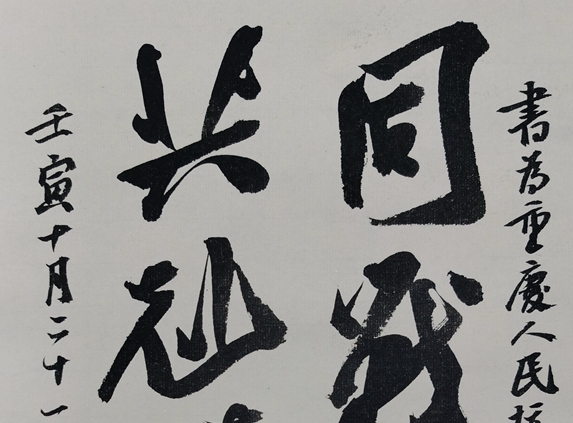 書為重慶人民抗
同戰
共
壬寅十月二十一